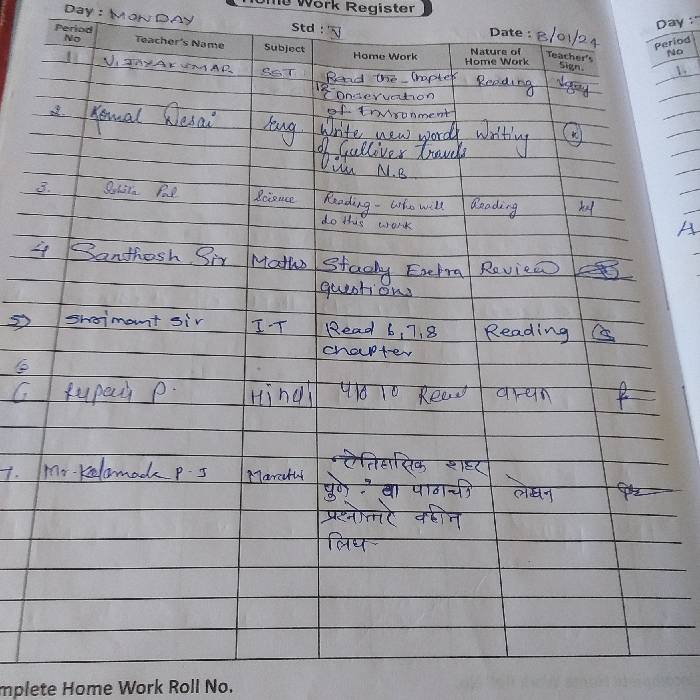 Home Work Register
Day : MONDAY Std : V Date : 8/01/24 Day :
Period No Teacher's Name Subject Home Work Nature of Home Work Teacher's Sign. Period No
1 VIJAYAKUMAR SST Read the Chapter Reading 1.
12 Conservation
of Environment
2. Komal Desai Eng Write new words Writing
of Gulliver travels
in N.B
3. Pal Science Reading - who will Reading
do this work
4 Santhosh Sir Maths Stady Exetra Review
questions
5) Shrimant Sir I-T Read 6,7,8 Reading
chapter
6
6 Rupali P. Hindi पाठ 10 Read वाचन
7. Mr. Kalamade P.S Marathi ऐतिहासिक शहर
पुणे : या पाठाची लेखन
प्रश्नोत्तरे वहीत
लिह
mplete Home Work Roll No.